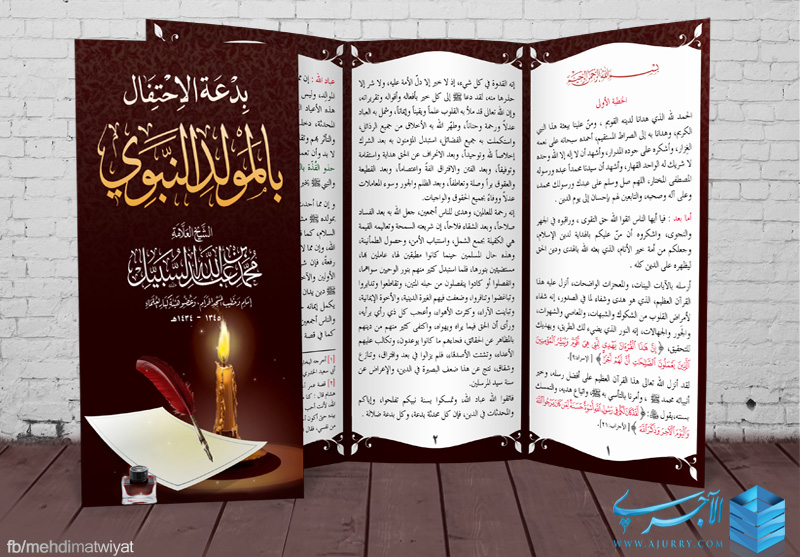 بِدْعَةُ الِاحْتِفَالِ
بِالْمَوْلِدِ النَّبَوِيِّ
الشَّيْخُ العَلَّامَةُ
مُحَمَّد بْن عَبْد اللَّه السُّبَيِّل
١٣٤٥ - ١٤٣٤هـ
بسم الله الرحمن الرحيم
الخطبة الأولى
الحمد لله الذي هدانا لدينه القويم ، ومنّ علينا ببعثة هذا النبي
الكريم، وهدانا به إلى الصراط المستقيم، أحمده سبحانه على نعمه
الغزار، وأشكره على جوده المدرار، وأشهد أن لا إله إلا الله وحده
لا شريك له الواحد القهار، وأشهد أن سيدنا محمداً عبده ورسوله
المصطفى المختار، اللهم صل وسلم على عبدك ورسولك محمد،
وعلى آله وصحبه، والتابعين لهم بإحسان إلى يوم الدين .
أما بعد : فيا أيها الناس اتقوا الله حق التقوى ، وراقبوه في الجهر
والنجوى، واشكروه أن منّ عليكم بالهداية لدين الإسلام،
وجعلكم من أمة خير الأنام، الذي بعثه الله بالهدى ودين الحق
ليظهره على الدين كله .
أرسله بالآيات البينات، والمعجزات الواضحات، أنزل عليه هذا
القرآن العظيم، الذي هو هدى وشفاء لما في الصدور، إنه شفاء
لأمراض القلوب من الشكوك والشبهات، والمعاصي والشهوات،
والجور والجهالات، إنه النور الذي يضيء لك الطريق، ويهديك
للتحقيق، ﴿ إِنَّ هَٰذَا الْقُرْآنَ يَهْدِي لِلَّتِي هِيَ أَقْوَمُ وَيُبَشِّرُ الْمُؤْمِنِينَ
الَّذِينَ يَعْمَلُونَ الصَّالِحَاتِ أَنَّ لَهُمْ أَجْرًا كَبِيرًا ﴾ [الإسراء:٩].
لقد أنزل الله تعالى هذا القرآن العظيم على أفضل رسله، وخير
أنبيائه محمد ﷺ ، وأمرنا بالتأسي به ﷺ، واتباع هديه، والتمسك
بسنته،يقول ﷻ: ﴿ لَقَدْ كَانَ لَكُمْ فِي رَسُولِ اللَّهِ أُسْوَةٌ حَسَنَةٌ لِمَنْ كَانَ يَرْجُو اللَّهَ
وَالْيَوْمَ الْآخِرَ وَذَكَرَ اللَّهَ ﴾ [الأحزاب:٢١].
١
إنه القدوة في كل شيء، إذ لا خير إلا دلّ الأمة عليه، ولا شر إلا
حذرها منه، لقد دعا ﷺ إلى كل خير بأفعاله وأقواله وتقريراته،
وإن الله تعالى قد ملأ به القلوب علماً ويقيناً وإيماناً، وشمل به العباد
عدلاً ورحمة وحناناً، وطهّر الله به الأخلاق من جميع الرذائل،
واستكملت به جميع الفضائل، استبدل المؤمنون به بعد الشرك
إخلاصاً لله وتوحيداً، وبعد الانحراف عن الحق هداية واستقامة
وتوفيقاً، وبعد الفتن والافتراق ألفة واعتصاماً، وبعد القطيعة
والعقوق براً وصلة وتعاطفاً، وبعد الظلم والجور وسوء المعاملات
عدلاً ووفاءً بجميع الحقوق والواجبات.
إنه رحمة للعالمين، وهدى للناس أجمعين، جعل الله به بعد الفساد
صلاحاً، وبعد الشقاء فلاحاً، إن شريعته السمحة وتعاليمه القيمة
هي الكفيلة بجمع الشمل، واستتباب الأمن، وحصول الطمأنينة،
وهذه حال المسلمين حينما كانوا مطبقين لها، عاملين بها،
مستضيئين بنورها، فلما استبدل كثير منهم بنور الوحيين سواهما،
وانفصلوا أو كادوا ينفصلون من حبله المتين، وتقاطعوا وتدابروا
وتباغضوا وتنافروا، وضعفت فيهم الغيرة الدينية، والأخوة الإيمانية،
وتباينت الآراء، وكثرت الأهواء، وأعجب كل ذي رأي برأيه،
ورأى أن الحق فيما يراه ويهواه، واكتفى كثير منهم من دينهم
بالتظاهر عن الحقائق، فحابهم ما كانوا يوعدون، وتكالب عليهم
الأعداء، وتشتت الأصدقاء، فلم يزالوا في بعد وافتراق، وتنازع
وشقاق، نتج عن هذا ضعف البصيرة في الدين، والإعراض عن
سنة سيد المرسلين.
فاتقوا الله عباد الله، وتمسكوا بسنة نبيكم تفلحوا، وإياكم
والمحدثات في الدين، فإن كل محدثة بدعة، وكل بدعة ضلالة .
٢
عباد الله :
الآجري
WWW.AJURRY.COM
fb/mehdimatwiyat